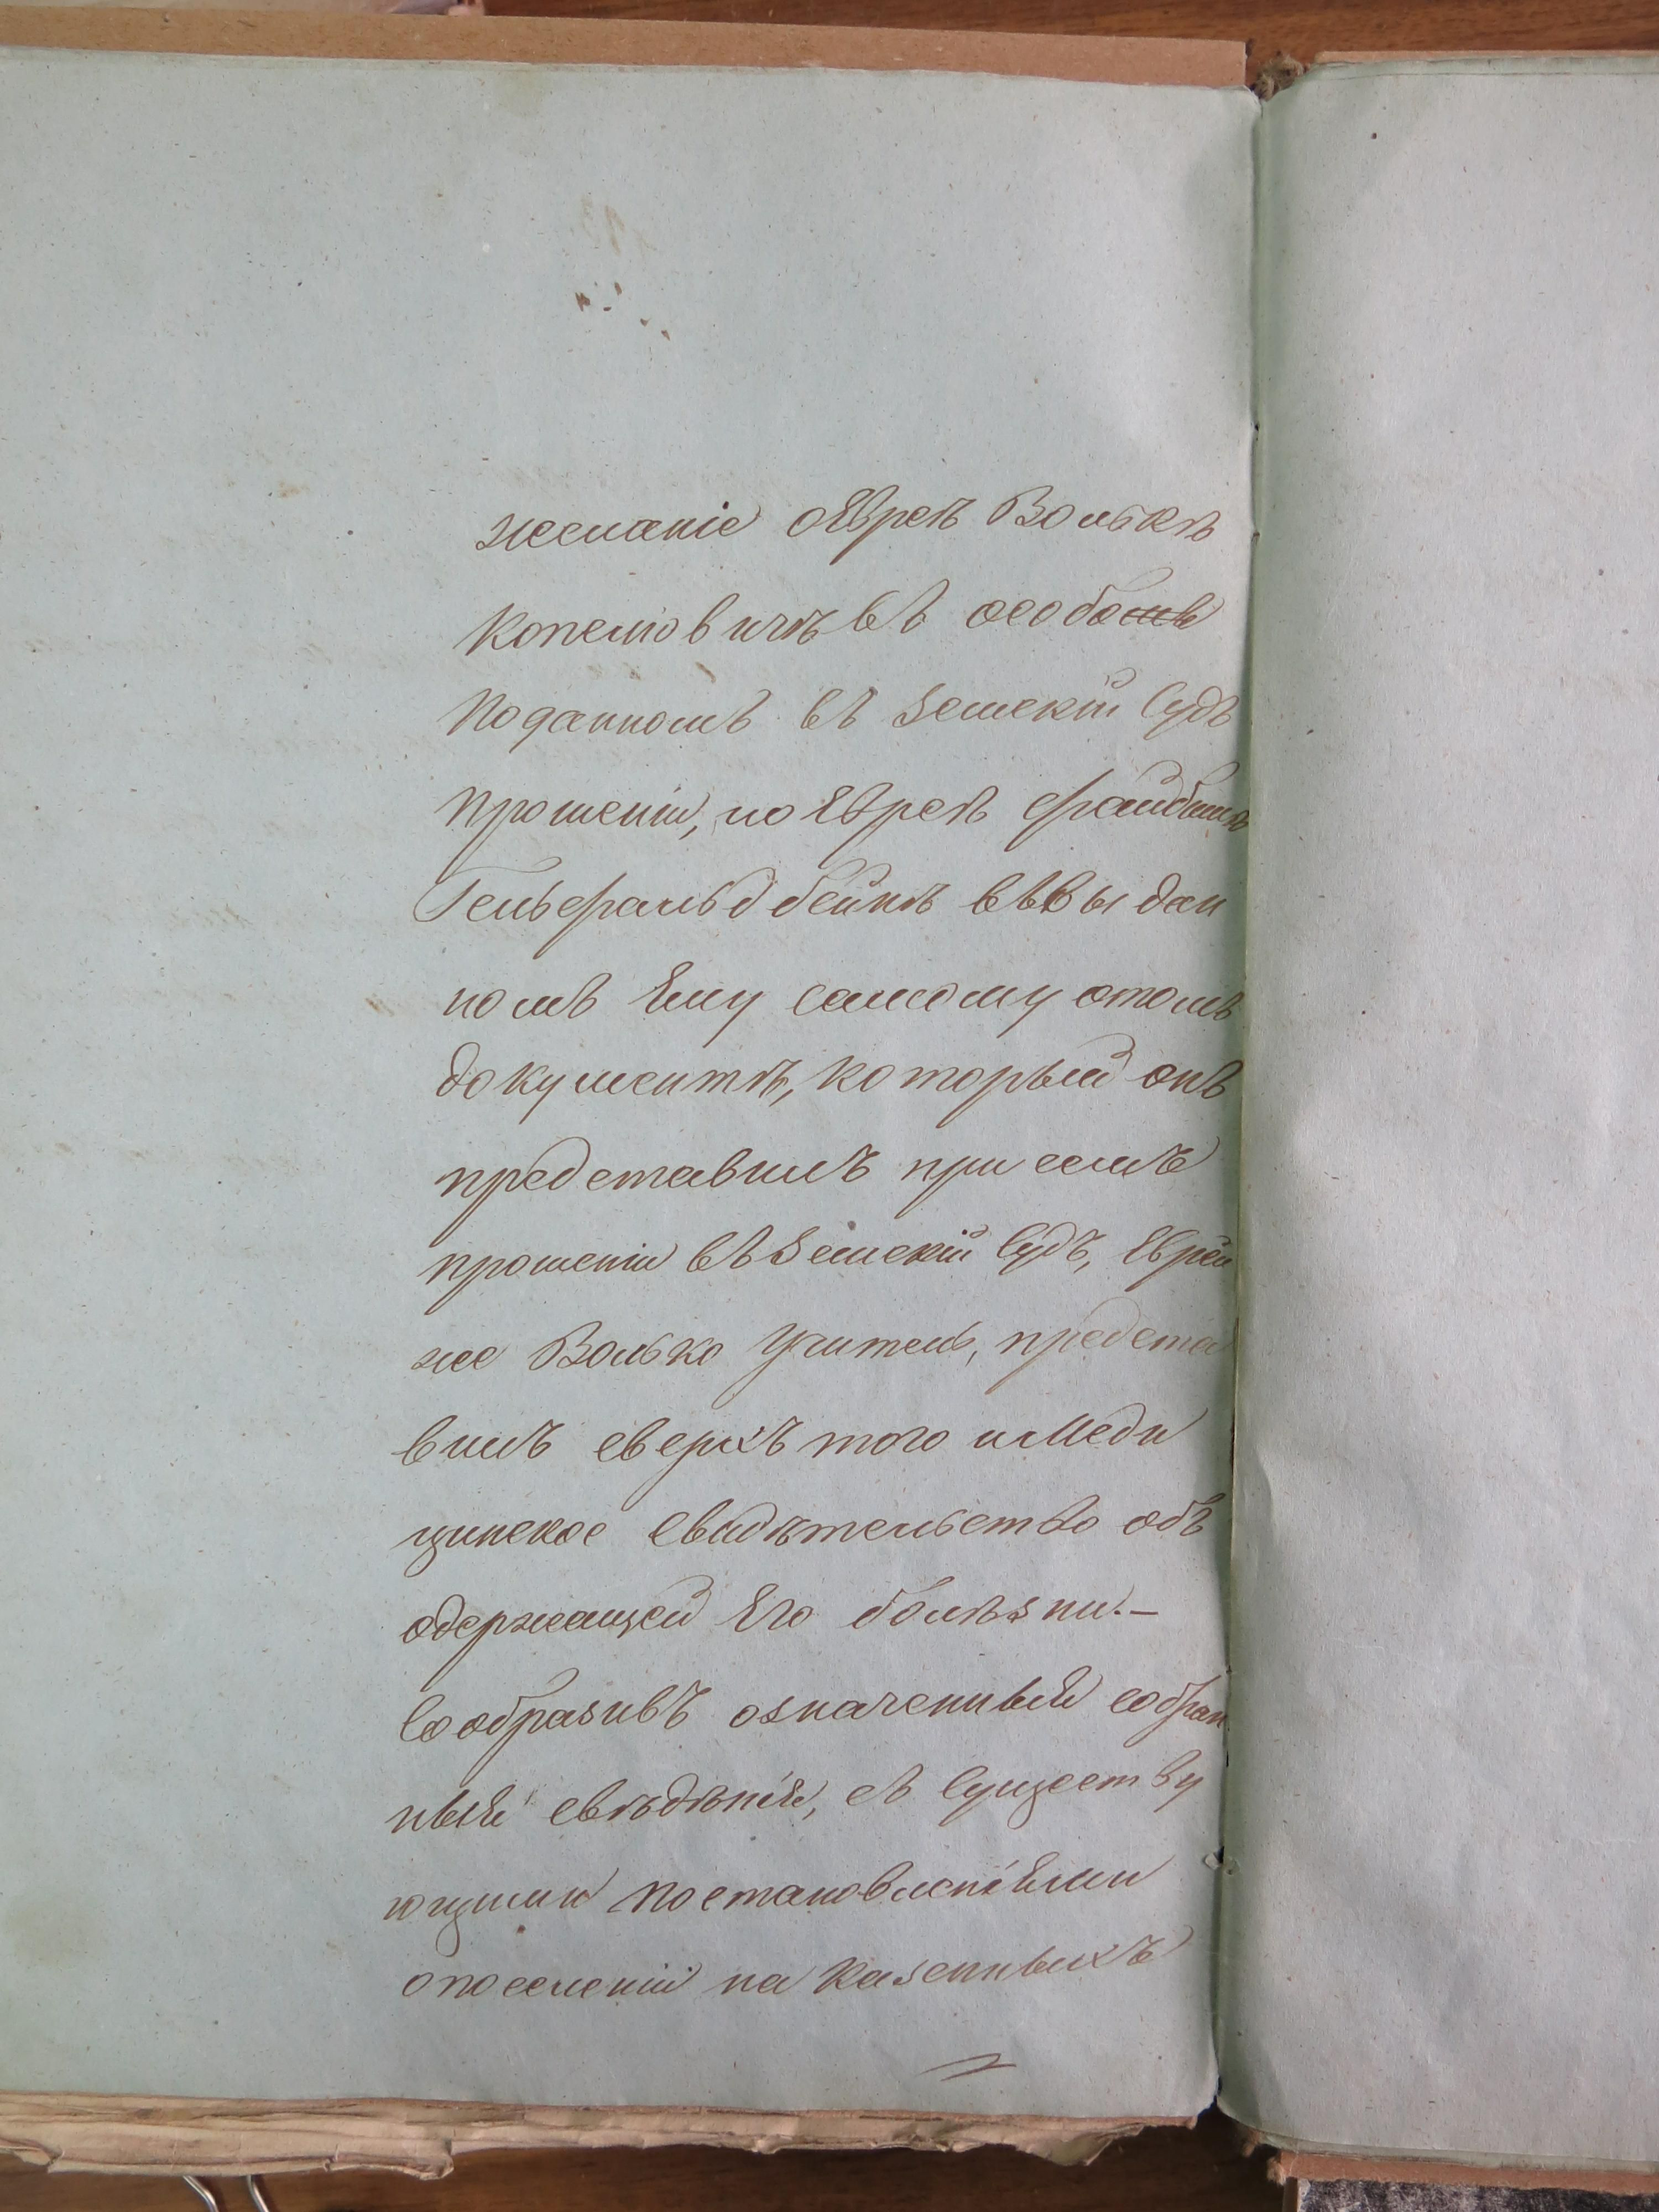 желаніе оЕвреѣ Волькѣ
Копелiовичѣ въ особомъ
поданномъ въ Земскій Судъ
прошеніи, по Евреѣ
Гельфальдбейнѣ въ выдан
номъ Ему самому отомъ
документѣ, который онъ
представилъ при семъ
прошеніи въ Земскій Судъ, Еврей
же Волько Учитель, предста
вилъ сверхъ того и Меди
цинское свидѣтельство объ
одержащей Его болѣзни.—
Сообразивъ означенныя собран
ныя свѣдѣнія, съ существу
ющими постановленіями
опоселеніи на казенныхъ